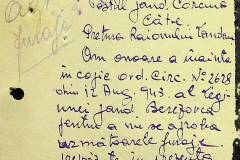 Postul jand. Corcma
Către
Pretura Raionului Landau
Am onoare a înainta
în copie ord. circ. No 2628
din 12 Aug. 943. al Legi
unei jand. Berezovca
pentru a ni se aproba
următoarele furaje